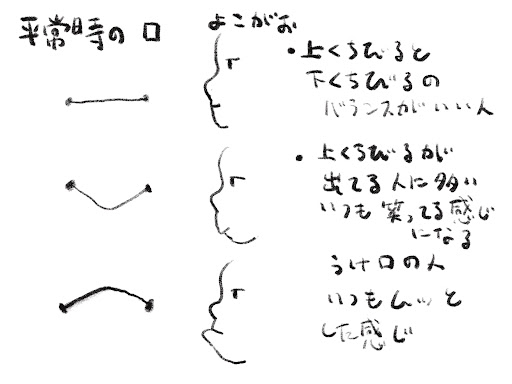 平常時の口
よこがお
・上くちびると
下くちびるの
バランスがいい人
・上くちびるが
出てる人に多い
いつも笑ってる感じ
になる
うけ口の人
いつもムッと
した感じ